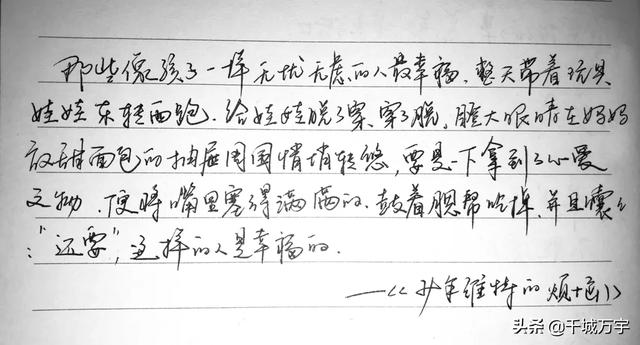 那些像孩子一样无忧无虑的人最幸福，整天带着玩具
娃娃东转西跑，给娃娃脱了穿，穿了脱，瞪大眼睛在妈妈
放甜面包的抽屉周围悄悄转悠，要是一下拿到了心爱
之物，便将嘴里塞得满满的，鼓着腮帮吃掉，并且嚷嚷
：“还要”，这样的人是幸福的。
——《少年维特的烦恼》
头条 @千城万宇